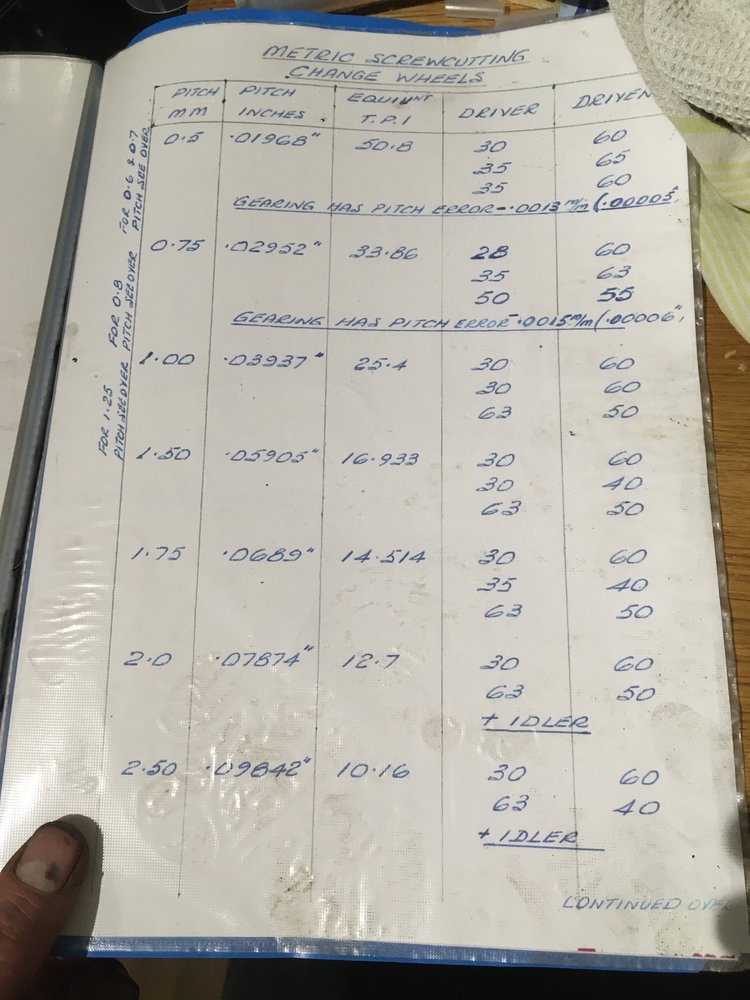 METRIC SCREWCUTTING
CHANGE WHEELS
PITCH MM PITCH INCHES EQUIVNT T.P.I DRIVER DRIVEN
0.5 .01968" 50.8 30 60
35 65
35 60
GEARING HAS PITCH ERROR -.0013 m/m (.00005"
0.75 .02952" 33.86 28 60
35 63
50 55
GEARING HAS PITCH ERROR -.0015 m/m (.00006"
1.00 .03937" 25.4 30 60
30 60
63 50
1.50 .05905" 16.933 30 60
30 40
63 50
1.75 .0689" 14.514 30 60
35 40
63 50
2.0 .07874" 12.7 30 60
63 50
+ IDLER
2.50 .09842" 10.16 30 60
63 40
+ IDLER
CONTINUED OVER
FOR 0.6 & 0.7
PITCH SEE OVER
FOR 0.8
PITCH SEE OVER
FOR 1.25
PITCH SEE OVER